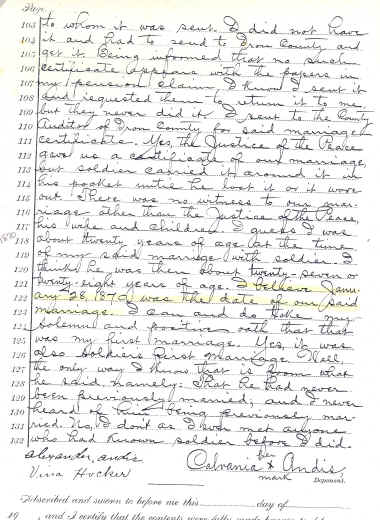 Page
103 to whom it was sent. I did not have
104 it and had to send to Iron County and
105 get it. Being informed that no such
106 certificate appears with the papers in
107 my pension claim, I know I sent it
108 and requested them to return it to me
109 but they never did it. I sent to the County
110 Auditor of Iron County for said marriage
111 certificate. Yes, the Justice of the Peace
112 gave us a certificate of our marriage,
113 but soldier carried it around it in
114 his pocket until he lost it or it wore
115 out. There was no witness to our mar-
116 riage other than the Justice of the Peace,
117 his wife and children. I guess I was
118 about twenty years of age at the time
119 of my said marriage with soldier. I
120 think he was then about twenty-seven or
121 twenty-eight years of age. I believe Janu-
122 ary 28, 1870 was the date of our said
123 marriage. I can and do take my
124 solemn and positive oath that that
125 was my first marriage. Yes, it was
126 also soldiers first marriage. Well
127 the only way I know that is from what
128 he said namely: That he had never
129 been previously married; and I never
130 heard of his being previously mar-
131 ried. No, I don't as I ever met anyone
132 who had known soldier before I did.
Alexander Andis her
Viva Hocker Calvania x Andis,
mark Deponent.
Subscribed and sworn to before me this day of
19 , and I certify that the contents were fully made known to